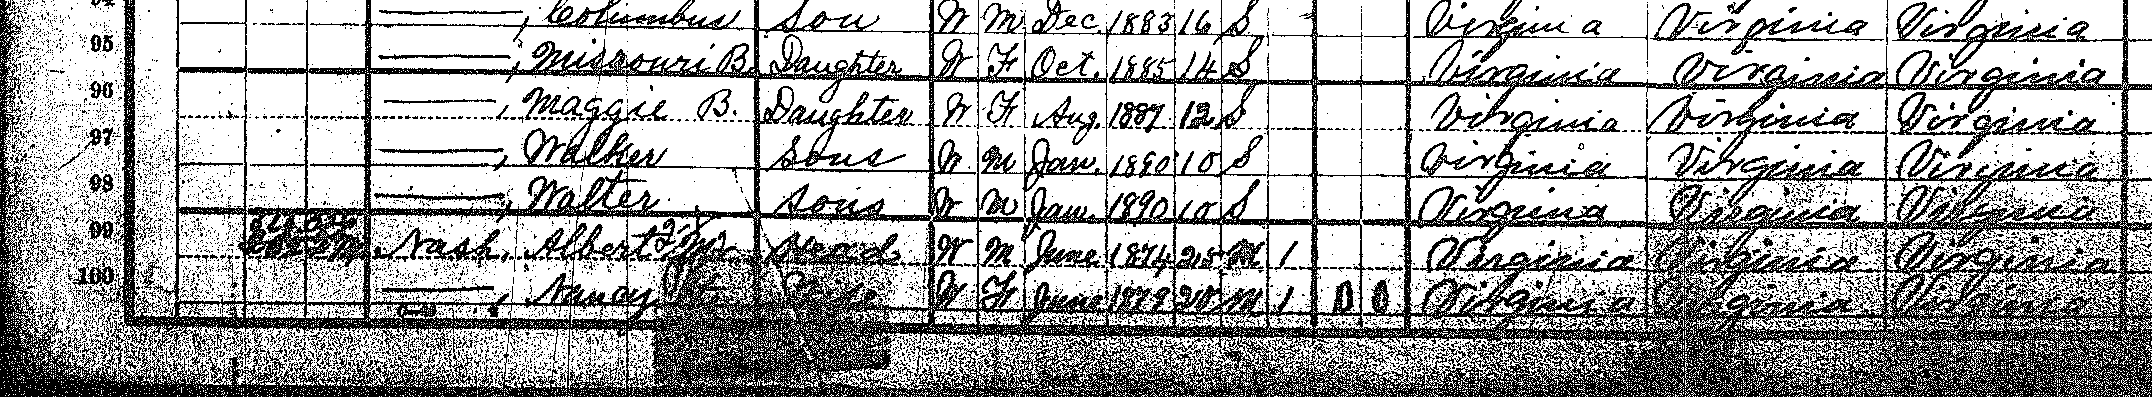 , Columbus Son W M Dec. 1883 16 S Virginia Virginia Virginia
95 , Missouri B. Daughter W F Oct. 1885 14 S Virginia Virginia Virginia
96 , Maggie B. Daughter W F Aug. 1887 12 S Virginia Virginia Virginia
97 , Walker Sons W M Jan. 1890 10 S Virginia Virginia Virginia
98 , Walter Sons W M Jan. 1890 10 S Virginia Virginia Virginia
99 Nash, Albert Head W M June 1874 25 M 1 Virginia Virginia Virginia
100 , Nancy W F June 1879 20 M 1 0 0 Virginia Virginia Virginia